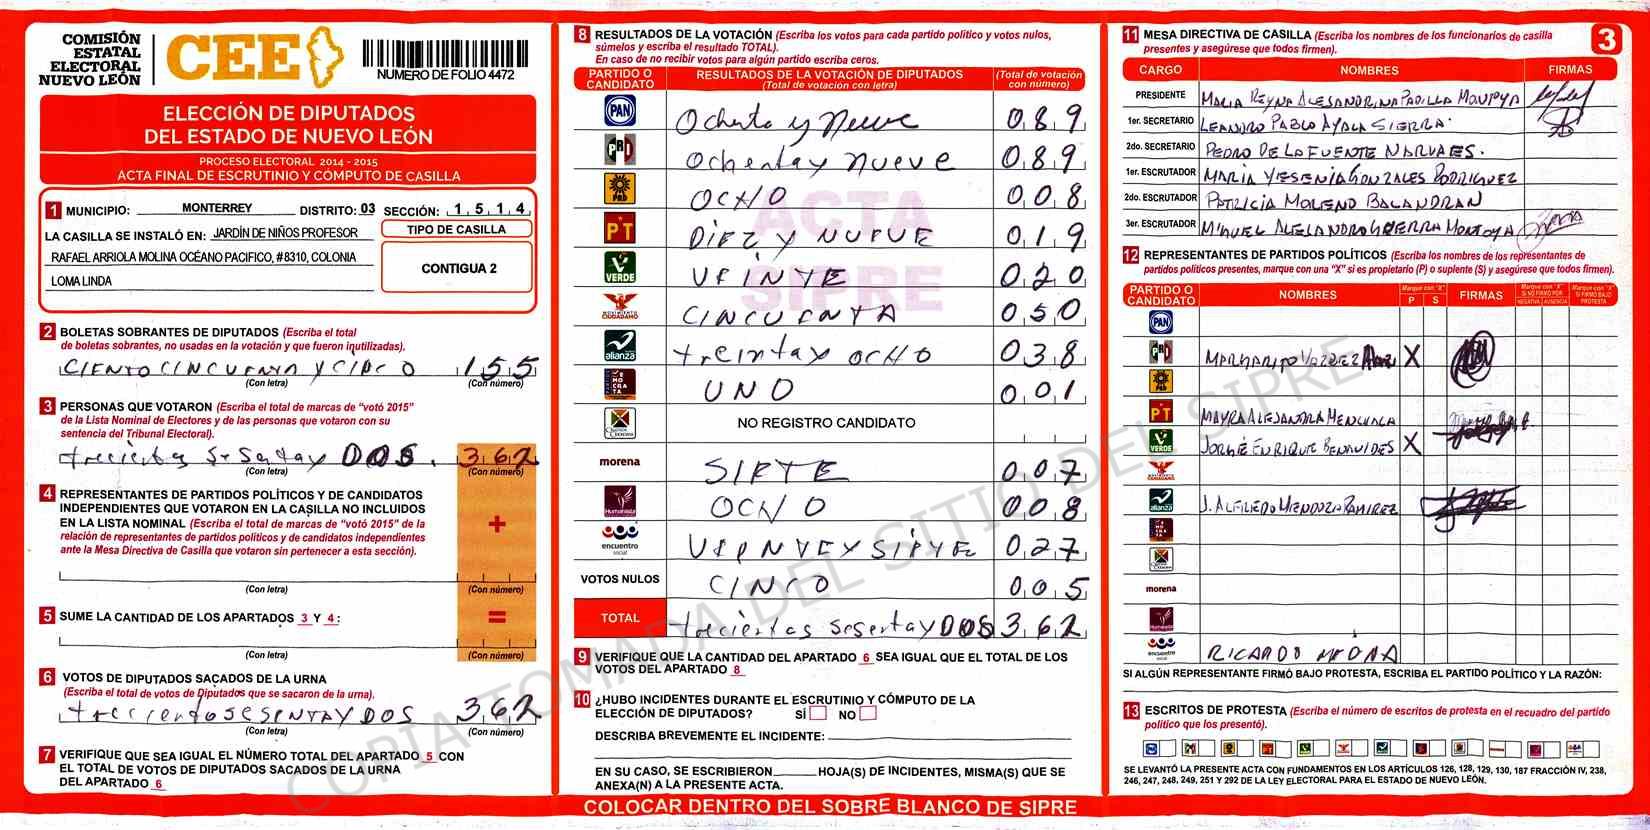 COMISIÓN
ESTATAL
ELECTORAL
NUEVO LEÓN
CEE
NUMERO DE FOLIO 4472
ELECCIÓN DE DIPUTADOS
DEL ESTADO DE NUEVO LEÓN
PROCESO ELECTORAL 2014 - 2015
ACTA FINAL DE ESCRUTINIO Y CÓMPUTO DE CASILLA
1 MUNICIPIO: MONTERREY DISTRITO: 03 SECCIÓN: 1514
LA CASILLA SE INSTALÓ EN: JARDÍN DE NIÑOS PROFESOR
RAFAEL ARRIOLA MOLINA OCÉANO PACIFICO, #8310, COLONIA
LOMA LINDA
TIPO DE CASILLA
CONTIGUA 2
2 BOLETAS SOBRANTES DE DIPUTADOS (Escriba el total
de boletas sobrantes, no usadas en la votación y que fueron inutilizadas).
CIENTO CINCUENTA Y CINCO 155
(Con letra) (Con número)
3 PERSONAS QUE VOTARON (Escriba el total de marcas de "votó 2015"
de la Lista Nominal de Electores y de las personas que votaron con su
sentencia del Tribunal Electoral).
trecientas sesentay DOS. 362
(Con letra) (Con número)
4 REPRESENTANTES DE PARTIDOS POLÍTICOS Y DE CANDIDATOS
INDEPENDIENTES QUE VOTARON EN LA CASILLA NO INCLUIDOS
EN LA LISTA NOMINAL (Escriba el total de marcas de "votó 2015" de la
relación de representantes de partidos políticos y de candidatos independientes
ante la Mesa Directiva de Casilla que votaron sin pertenecer a esta sección).
+
(Con letra) (Con número)
5 SUME LA CANTIDAD DE LOS APARTADOS 3 Y 4:
=
(Con letra) (Con número)
6 VOTOS DE DIPUTADOS SACADOS DE LA URNA
(Escriba el total de votos de Diputados que se sacaron de la urna).
trecientoSESENTAY DOS 362
(Con letra) (Con número)
7 VERIFIQUE QUE SEA IGUAL EL NÚMERO TOTAL DEL APARTADO 5 CON
EL TOTAL DE VOTOS DE DIPUTADOS SACADOS DE LA URNA
DEL APARTADO 6
8 RESULTADOS DE LA VOTACIÓN (Escriba los votos para cada partido político y votos nulos,
súmelos y escriba el resultado TOTAL).
En caso de no recibir votos para algún partido escriba ceros.
PARTIDO O CANDIDATO
RESULTADOS DE LA VOTACIÓN DE DIPUTADOS
(Total de votación con letra)
(Total de votación con número)
PAN Ochenta y Nueve 089
PRD Ochentay nueve 089
PRD OCHO 008
PT DIEZ Y NUEVE 019
VERDE VEINTE 020
MOVIMIENTO CIUDADANO CINCUENTA 050
alianza treintay OCHO 038
DEMOCRATA UNO 001
Cruzada Ciudadana NO REGISTRO CANDIDATO
morena SIETE 007
Humanista OCHO 008
encuentro social VEINTEY SIETE 027
VOTOS NULOS CINCO 005
TOTAL trecientas sesentay DOS 362
9 VERIFIQUE QUE LA CANTIDAD DEL APARTADO 6 SEA IGUAL QUE EL TOTAL DE LOS
VOTOS DEL APARTADO 8
10 ¿HUBO INCIDENTES DURANTE EL ESCRUTINIO Y CÓMPUTO DE LA
ELECCIÓN DE DIPUTADOS? SÍ NO
DESCRIBA BREVEMENTE EL INCIDENTE:
EN SU CASO, SE ESCRIBIERON HOJA(S) DE INCIDENTES, MISMA(S) QUE SE
ANEXA(N) A LA PRESENTE ACTA.
COLOCAR DENTRO DEL SOBRE BLANCO DE SIPRE
ACTA
SIPRE
COPIA TOMADA DEL SITIO DEL SIPRE
11 MESA DIRECTIVA DE CASILLA (Escriba los nombres de los funcionarios de casilla
presentes y asegúrese que todos firmen).
3
CARGO NOMBRES FIRMAS
PRESIDENTE MARIA REYNA ALEJANDRINA PADILLA MONTOYA
1er. SECRETARIO LEANDRO PABLO AYALA SIERRA.
2do. SECRETARIO PEDRO DE LA FUENTE NARVAES.
1er. ESCRUTADOR MARIA YESENIA GONZALES RODRIGUEZ
2do. ESCRUTADOR PATRICIA MORENO BALANDRAN
3er. ESCRUTADOR MIGUEL ALEJANDRO GUERRA MONTOYA
12 REPRESENTANTES DE PARTIDOS POLÍTICOS (Escriba los nombres de los representantes de
partidos políticos presentes, marque con una "X" si es propietario (P) o suplente (S) y asegúrese que todos firmen).
PARTIDO O CANDIDATO
NOMBRES
Marque con "X"
P S
FIRMAS
Marque con "X" SI NO FIRMÓ POR
NEGATIVA AUSENCIA
Marque con "X" SI FIRMÓ BAJO PROTESTA
PAN
PRI MARGARITO X
PRD
PT MAYRA ALEJANDRA
VERDE JORGE ENRIQUE BENAVIDES X
alianza J. ALFREDO MENDOZA RAMIREZ
morena
encuentro social RICARDO MEDNA
SI ALGÚN REPRESENTANTE FIRMÓ BAJO PROTESTA, ESCRIBA EL PARTIDO POLÍTICO Y LA RAZÓN:
13 ESCRITOS DE PROTESTA (Escriba el número de escritos de protesta en el recuadro del partido
político que los presentó).
SE LEVANTÓ LA PRESENTE ACTA CON FUNDAMENTOS EN LOS ARTÍCULOS 126, 128, 129, 130, 187 FRACCIÓN IV, 238,
246, 247, 248, 249, 251 Y 292 DE LA LEY ELECTORAL PARA EL ESTADO DE NUEVO LEÓN.